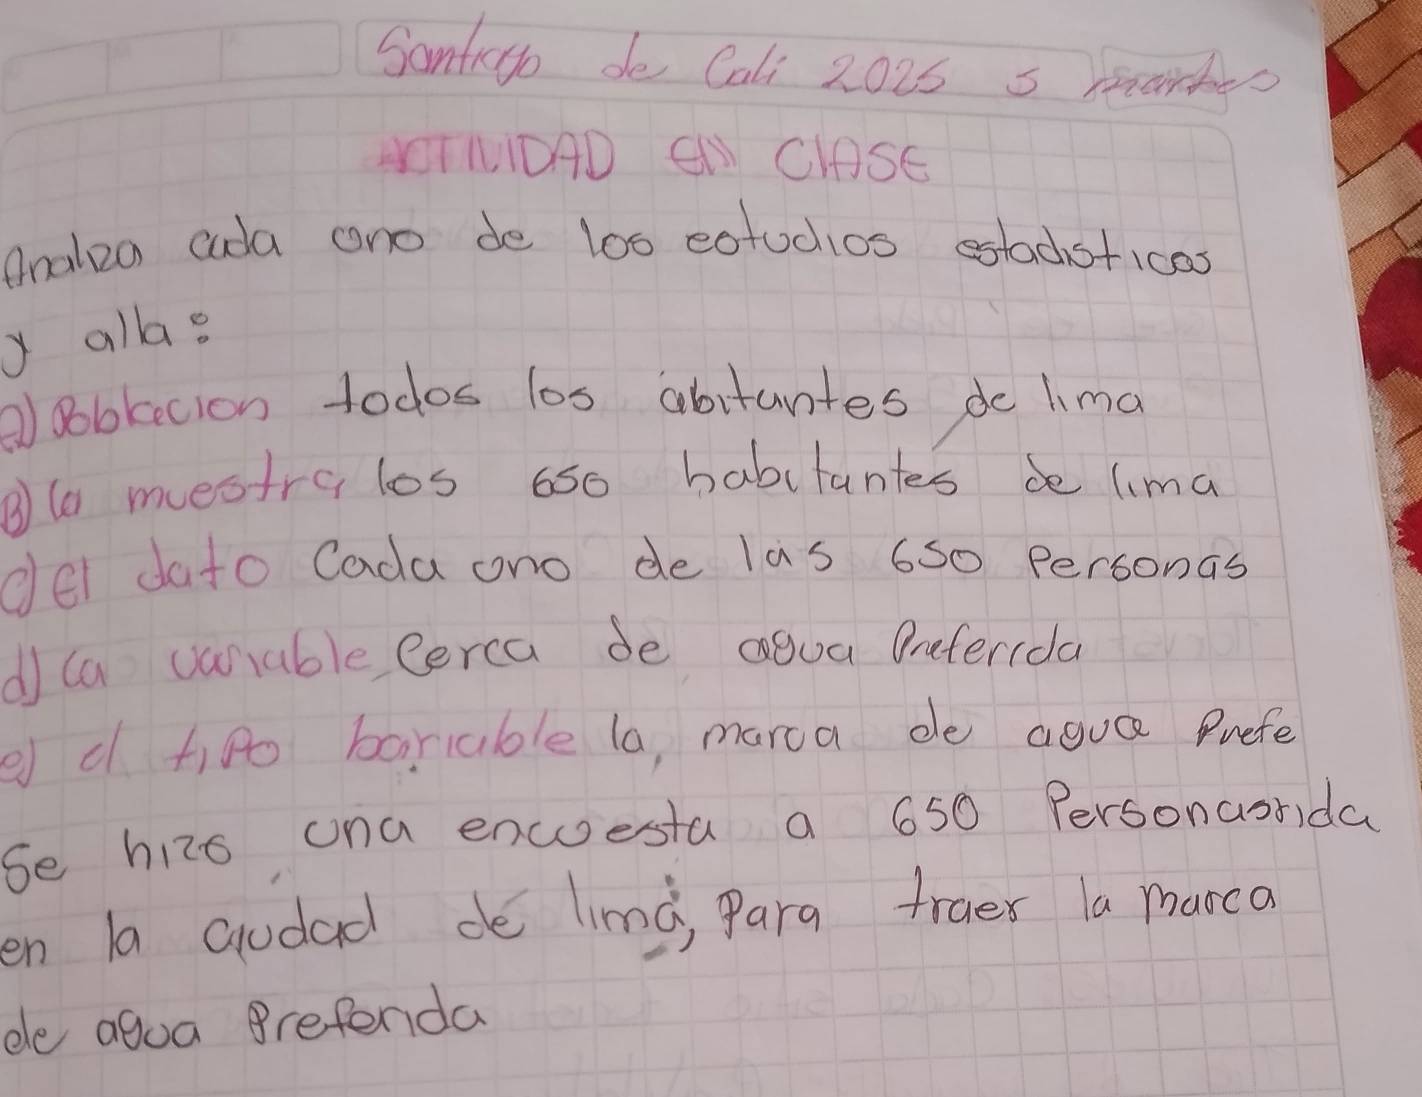 Santiago de Cali 2025 5 martes
ACTIVIDAD EN ClASE
Analiza cada ono de los estudios estadisticos
y alla:
a) Poblacion todos los abitantes de lima
B) la muestra los 650 habitantes de lima
c) El dato Cada ono de las 650 Personas
d) la variable, Cerca de agua Preferida
e) el tipo bariable la, marca de agua Prefe
Se hizo una encuesta a 650 Personasrida
en la ciudad de lima, Para traer la marca
de agua Preferida